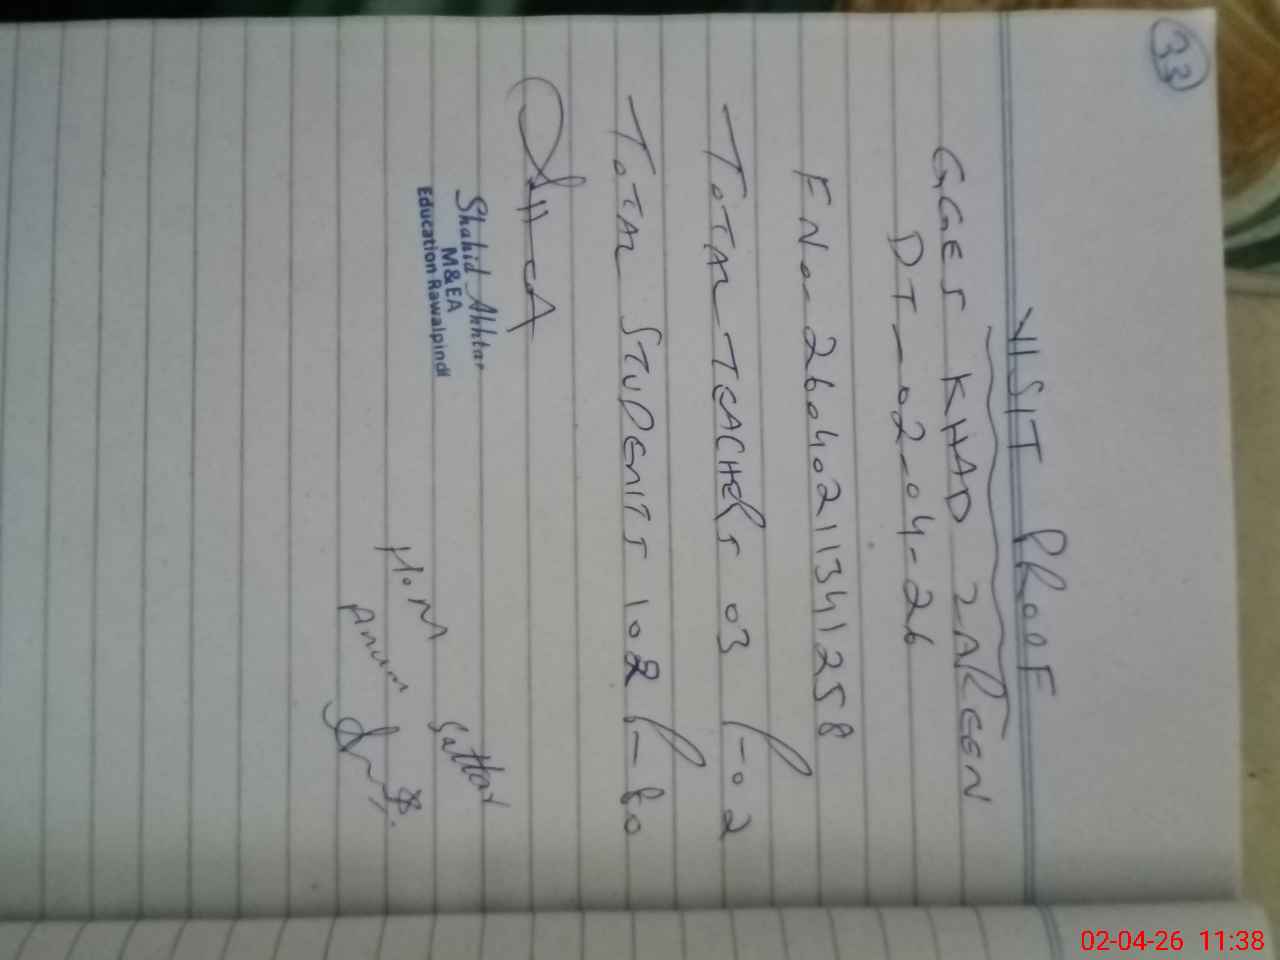 33
VISIT PROOF
GGES KHAD ZAREEN
DT_02-04-26
FNo- 26040211341258
TOTAL TEACHERS 03 P-02
TOTAL STUDENTS 102 P-80
Shahid Akhtar
M&EA
Education Rawalpindi
H.M
Anum Sattar
02-04-26 11:38